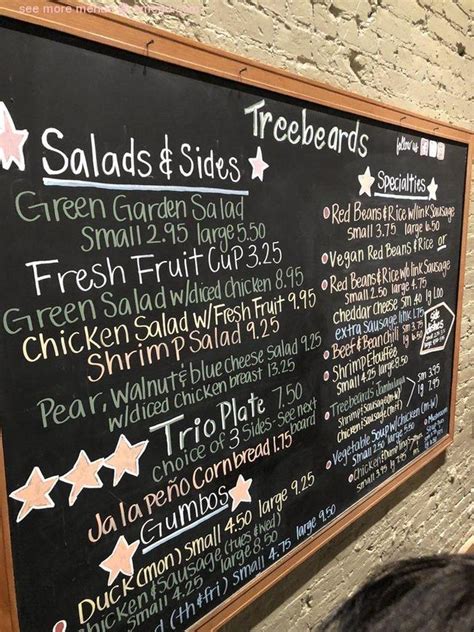 see more menus
Treebeards
follow us
Salads & Sides
Green Garden Salad
small 2.95 large 5.50
Fresh Fruit Cup 3.25
Green Salad w/diced chicken 8.95
Chicken Salad w/Fresh Fruit 9.95
Shrimp Salad 9.25
Pear, Walnut & blue Cheese Salad 9.25
w/diced Chicken breast 13.25
Trio Plate 7.50
choice of 3 Sides - See next
board
Jalapeño Cornbread 1.75
Gumbos
Duck (mon) small 4.50 large 9.25
chicken & Sausage (tues & wed)
small 4.25 large 8.50
(th & fri) small 4.75 large 9.50
Specialties
Red Beans & Rice w/link Sausage
small 3.75 large 6.50
Vegan Red Beans & Rice or
Red Beans & Rice w/o link Sausage
small 2.50 large 4.75
cheddar cheese sm .40 lg 1.00
extra Sausage link 1.75
Beef & Bean Chili
Shrimp Etouffee
small 4.25 large 8.50
Treebeards Jambalaya
Shrimp & Sausage
chicken & Sausage
Vegetable Soup w/chicken (m-w)
small 2.50 large
Chicken &
side
dishes